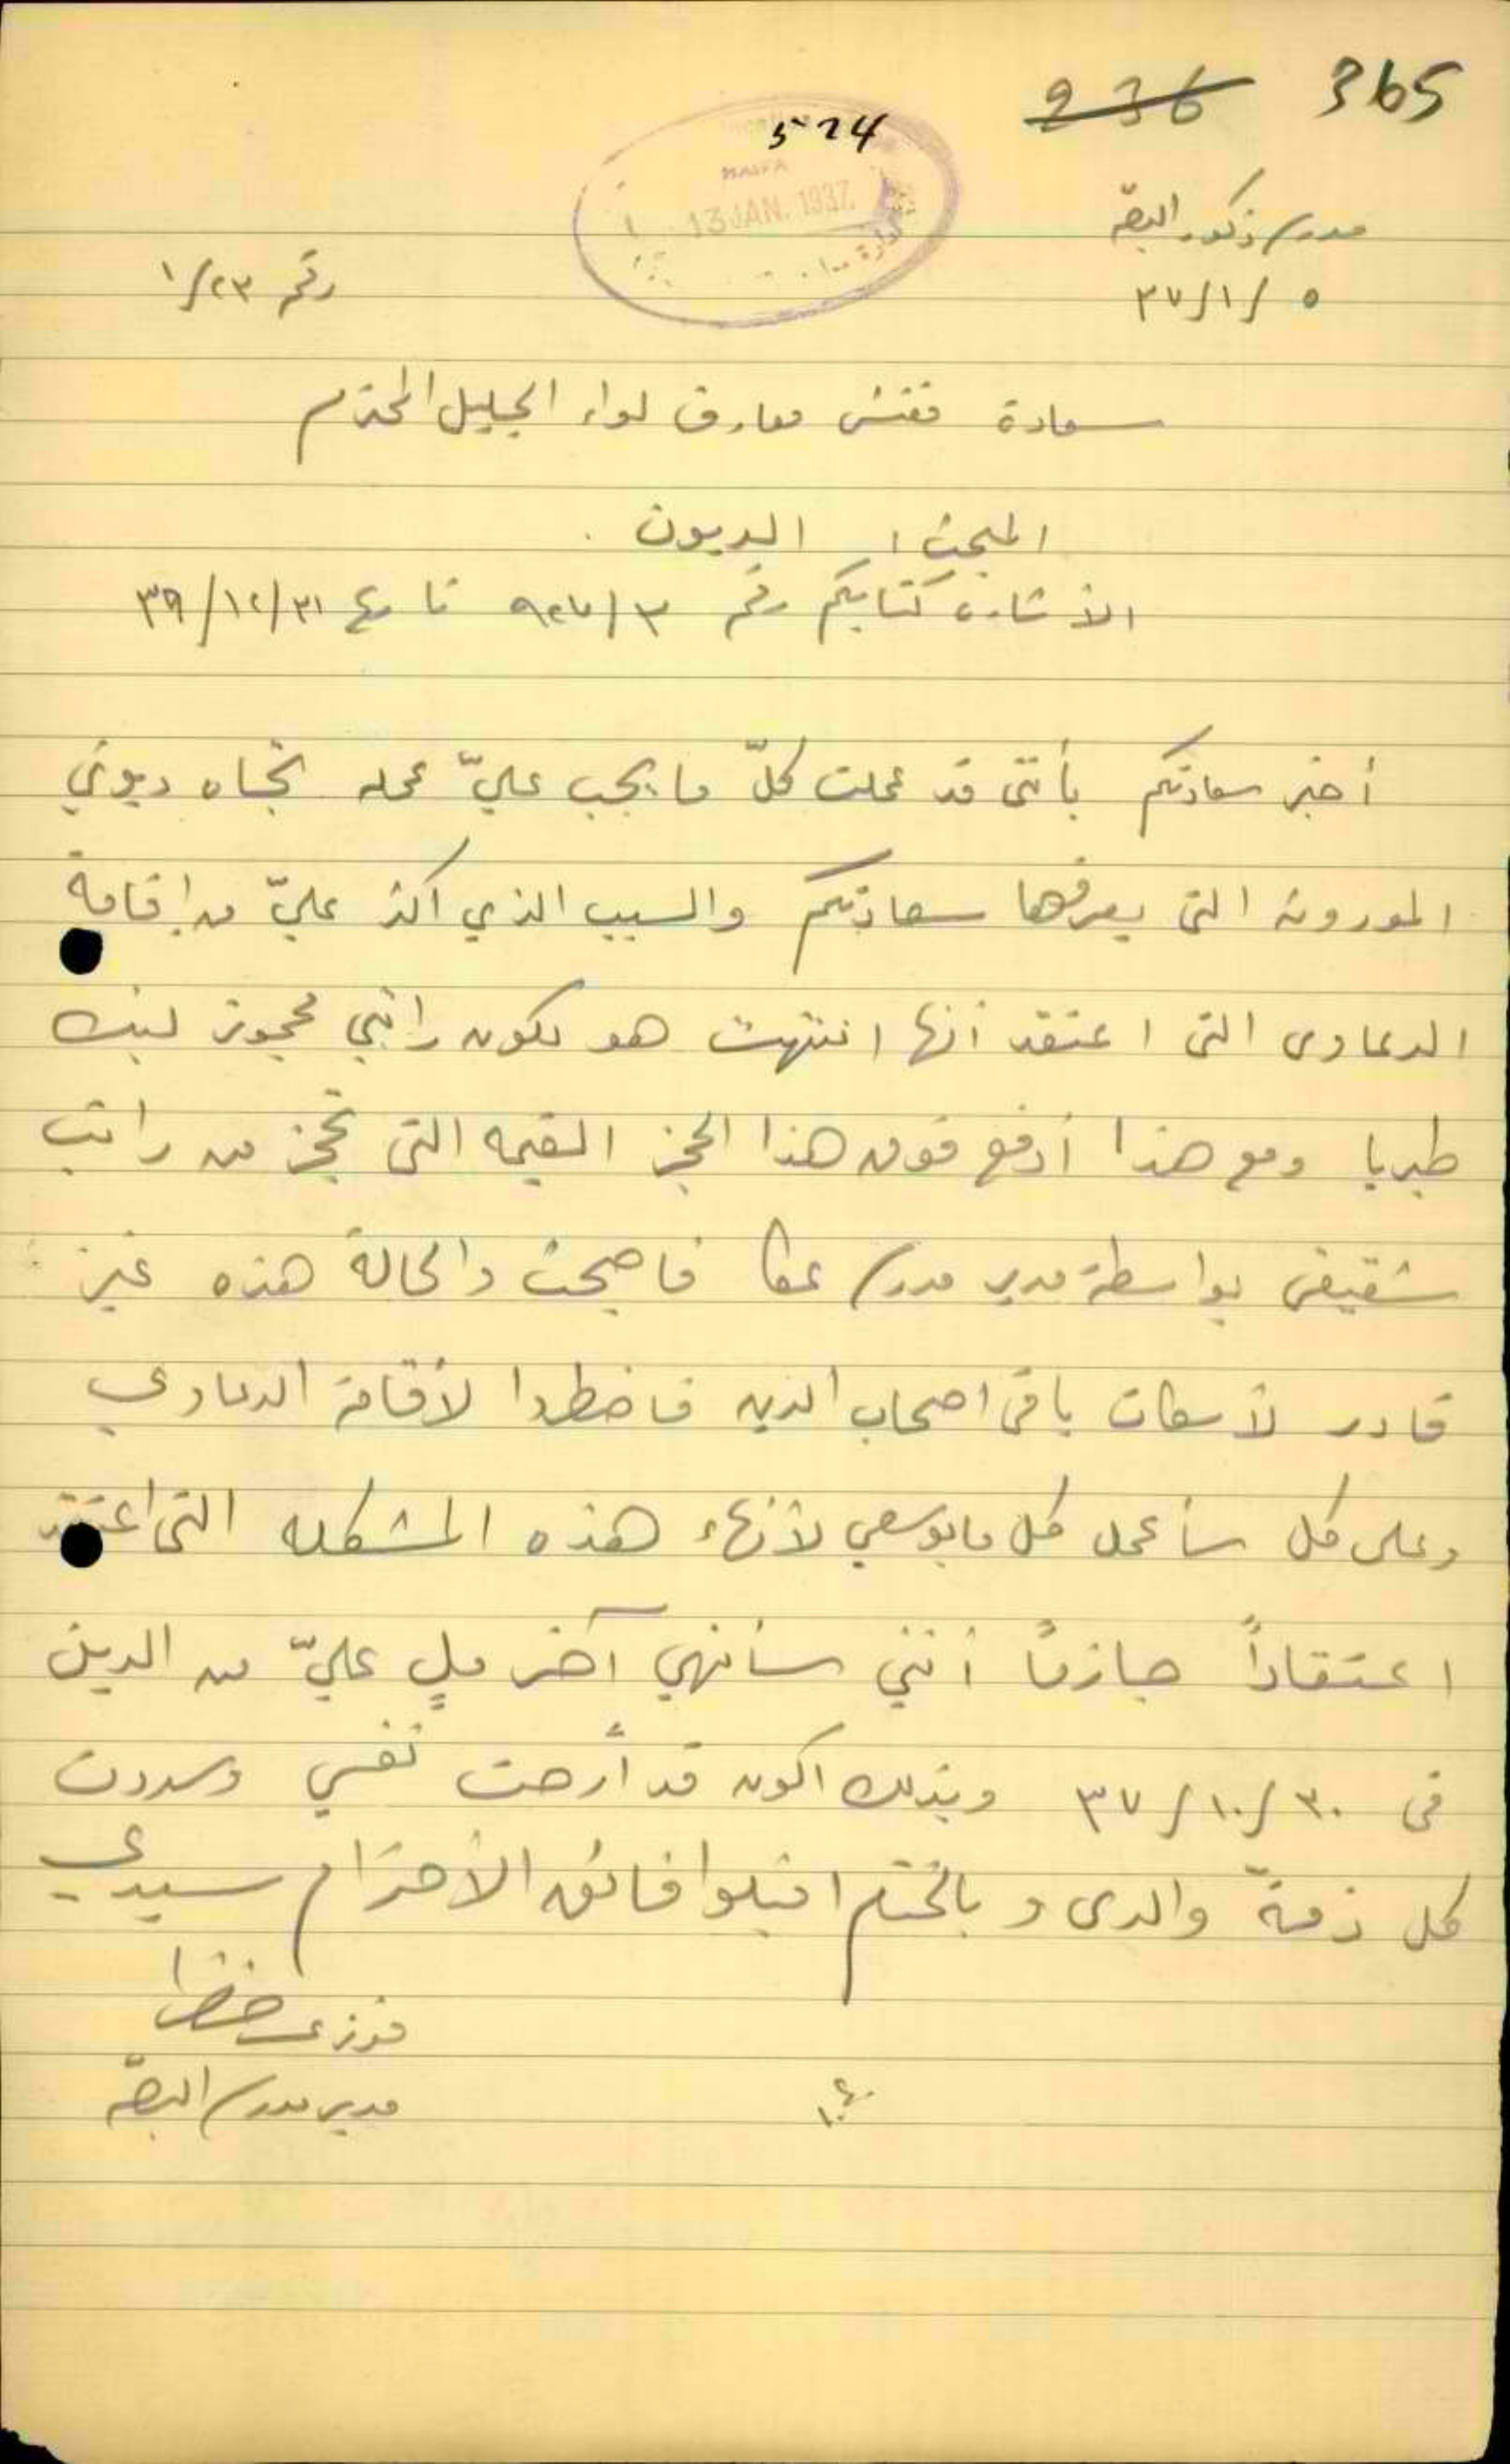 236 365
574
HAIFA
13 JAN. 1937
مدرسة ذكور البصه
٥/١/٣٧
رقم ١/٢٣
سعادة مفتش معارف لواء الجليل المحترم
المبحث: الديون.
الأشارة كتابكم رقم ٩٢٧/٣ تاريخ ٣١/١٢/٣٩
أخبر سعادتكم بأنني قد عملت كلّ ما يجب عليّ عمله تجاه ديوني
الموروثه التي يعرفها سعادتكم والسبب الذي اكثر عليّ من إقامة
الدعاوى التي اعتقد أنها انتهت هو لكون راتبي محجوز لبنك
طبريا ومع هذا أدفع فوق هذا الحجز القيمه التي تحجز من راتب
شقيقي بواسطة مدير مدرسة عكا فاصبحت والحالة هذه غير
قادر لأسكات باقي اصحاب الدين فاضطروا لأقامة الدعاوي
وعلى كل سأعمل كل ما بوسعي لأنهاء هذه المشكله التي اعتقد
اعتقاداً جازماً أنني سأنهي آخر ملٍ عليّ من الدين
في ٣٠/١٠/٣٧ وبذلك اكون قد أرحت نفسي وسددت
كل ذمة والدي و بالختام اقبلوا فائق الأحترام سيدي
فوزي خضرا
مدير مدرسة البصّه